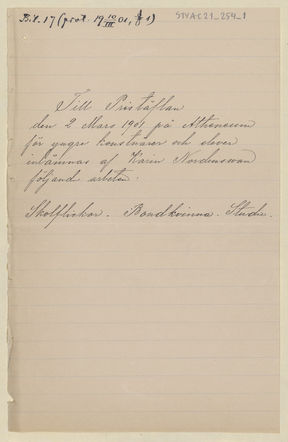 Bil. 17 (prot. 19 10/III 01, § 1)
STVAC21_254_1
Till Pristäflan
den 2 Mars 1901 på Atheneum
för yngre konstnärer och elever
inlämnas af Karin Nordenswan
följande arbeten.
Skolflickor. Bondkvinna. Studie.